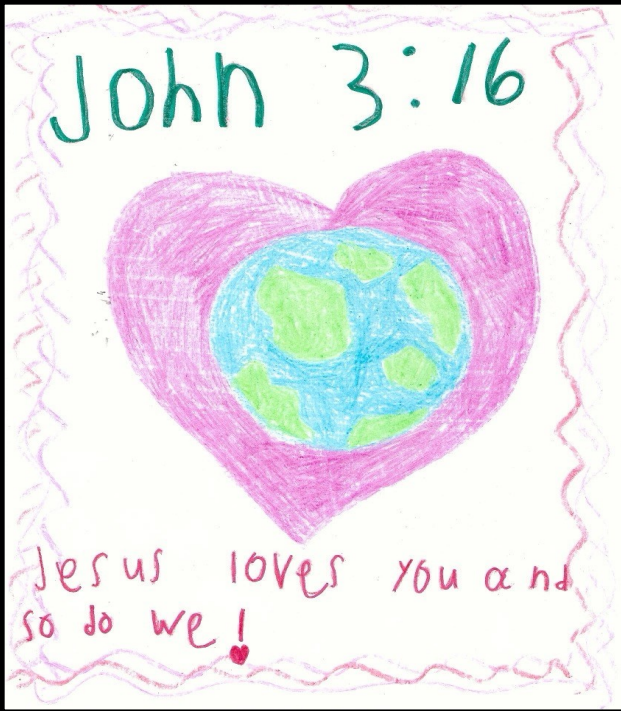 John 3:16
Jesus loves you and
so do we!